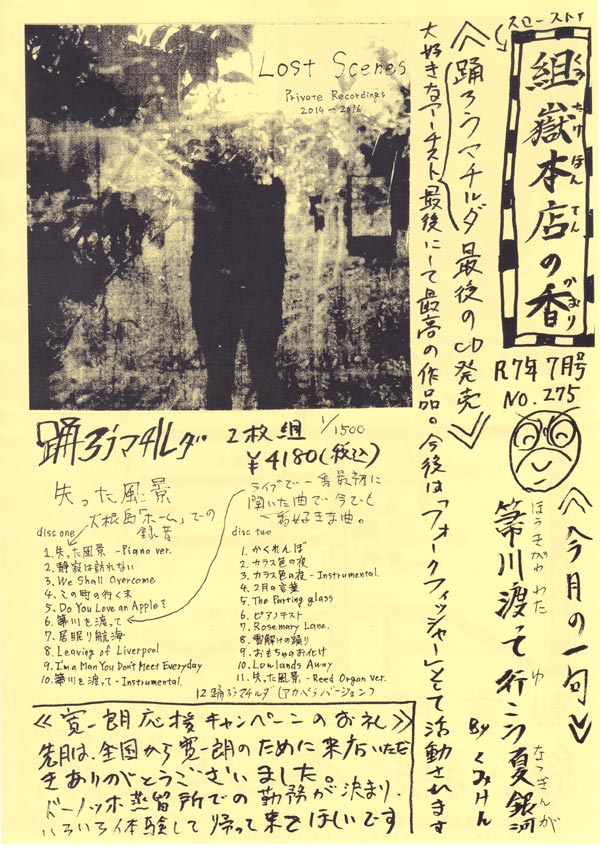 スローストア
組嶽本店の香
くみ たけ ほん てん かおり
R7年7月号
No.275
《今月の一句》
箒川渡って行こう夏銀河
ほうきがわ わた ゆ なつぎんが
By くみけん
《踊ろうマチルダ 最後のCD発売》
大好きなアーチスト最後にして最高の作品。今後は「フォークフィッシャー」として活動されます
Lost Scenes
Private Recordings
2014~2016
踊ろうマチルダ
2枚組 1/1500
¥4180(税込)
ライブで一番最初に
聞いた曲で今でも
一番好きな曲。
失った風景
大根島「ホーム」での
録音
disc one
1. 失った風景 -Piano ver.
2. 静寂は訪れない
3. We Shall Overcome
4. この町の行く末
5. Do You Love an Apple?
6. 箒川を渡って
7. 居眠り航海
8. Leaving of Liverpool
9. I'm a Man You Don't Meet Everyday
10. 箒川を渡って - Instrumental.
disc two
1. かくれんぼ
2. カラス色の夜
3. カラス色の夜 - Instrumental.
4. 2月の言葉
5. The Parting glass
6. ピアノテスト
7. Rosemary Lane.
8. 雪解けの踊り
9. おもちゃのお化け
10. Lowlands Away
11. 失った風景 - Reed Organ ver.
12 踊ろうマチルダ(アカペラバージョン)
《寛一朗応援キャンペーンのお礼》
先月は、全国から寛一朗のために来店いただ
きありがとうございました。
ドーノッホ蒸留所での勤務が決まり、
いろいろ体験して帰って来てほしいです